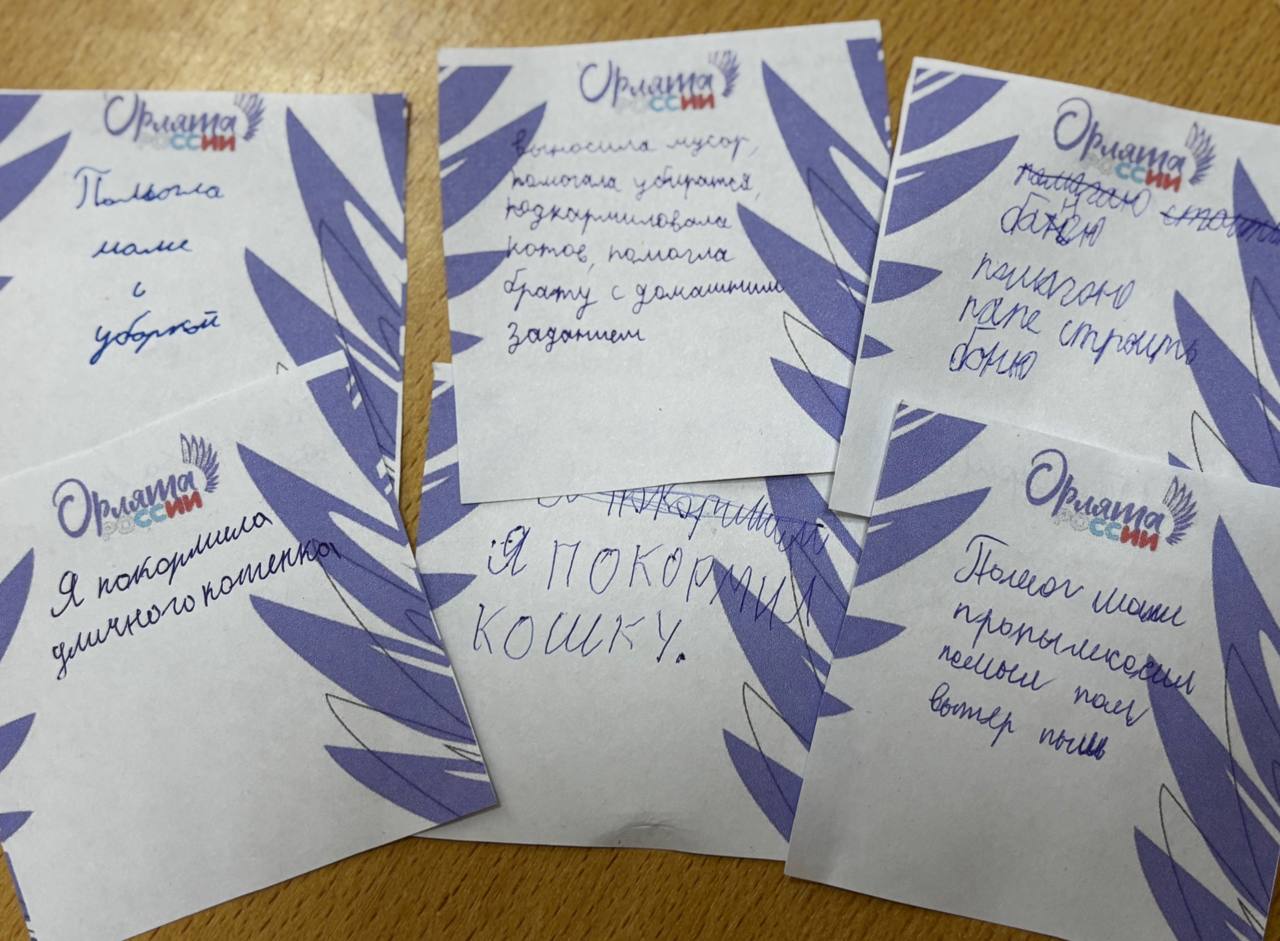 Орлята
РОССИИ
Помогла
маме
с
уборкой
Орлята
РОССИИ
выносила мусор,
помогала убиратся,
подкармиловала
котов, помогла
брату с домашним
заданием
Орлята
РОССИИ
помагаю
баню
памагаю
папе строить
баню
Орлята
РОССИИ
Я покормила
уличного котенка
Я покормил
Я ПОКОРМИЛ
КОШКУ.
Орлята
РОССИИ
Помог маме
пропылисосил
помыл полы
вытер пыль